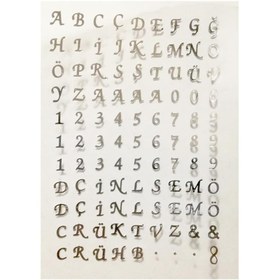 A B C Ç D E F G Ğ
H I İ J K L M N O
Ö P R S Ş T U Ü V
Y Z A A A A 0 0 8
1 2 3 4 5 6 7 8 9
1 2 3 4 5 6 7 8 9
1 2 3 4 5 6 7 8 9
D Ç İ N L S E M Ö
D Ç İ N L S E M Ö
C R Ü K T V Z & &
C R Ü H B . . . 8